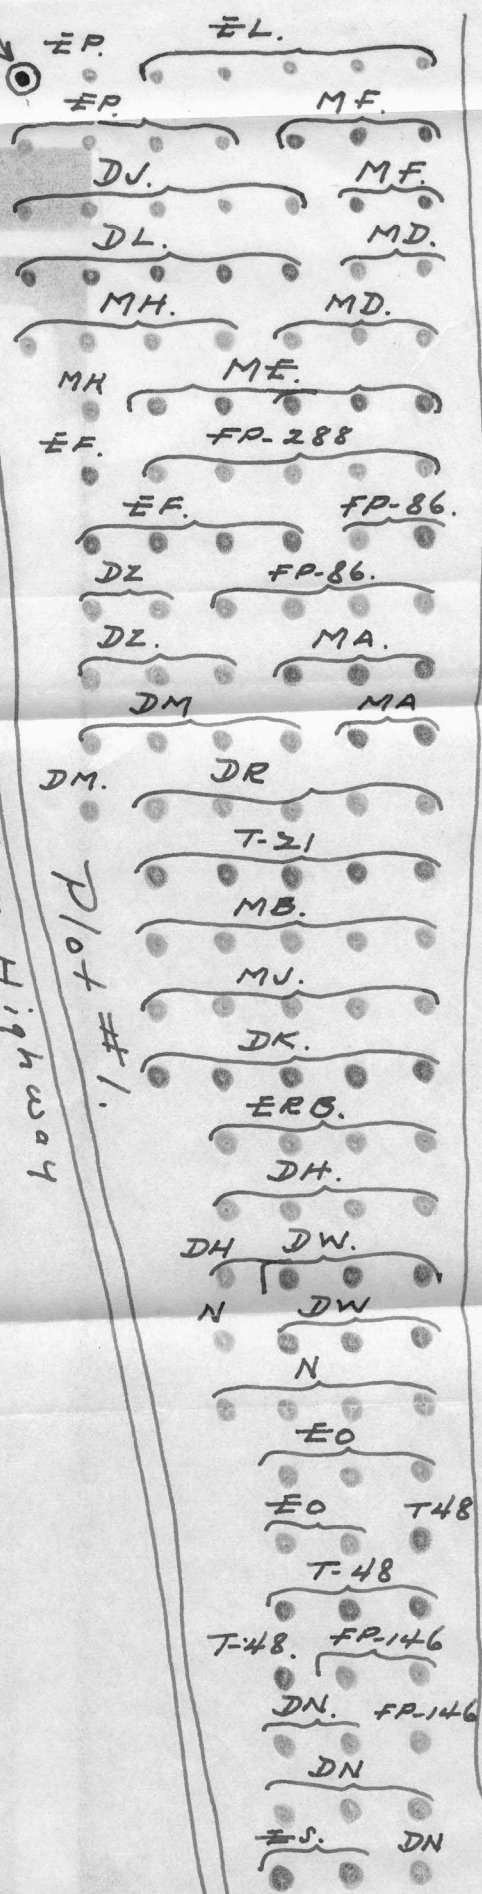 EP. EL.
EP. MF.
DJ. MF.
DL. MD.
MH. MD.
MH ME.
EF. FP-288
EF. FP-86.
DZ FP-86.
DZ. MA.
DM MA
DM. DR
T-21
MB.
MJ.
DK.
ERB.
DH.
DH DW.
N DW
N
EO
EO T48
T-48
T-48. FP-146
DN. FP-146
DN
ES. DN
Plot #1.
Highway